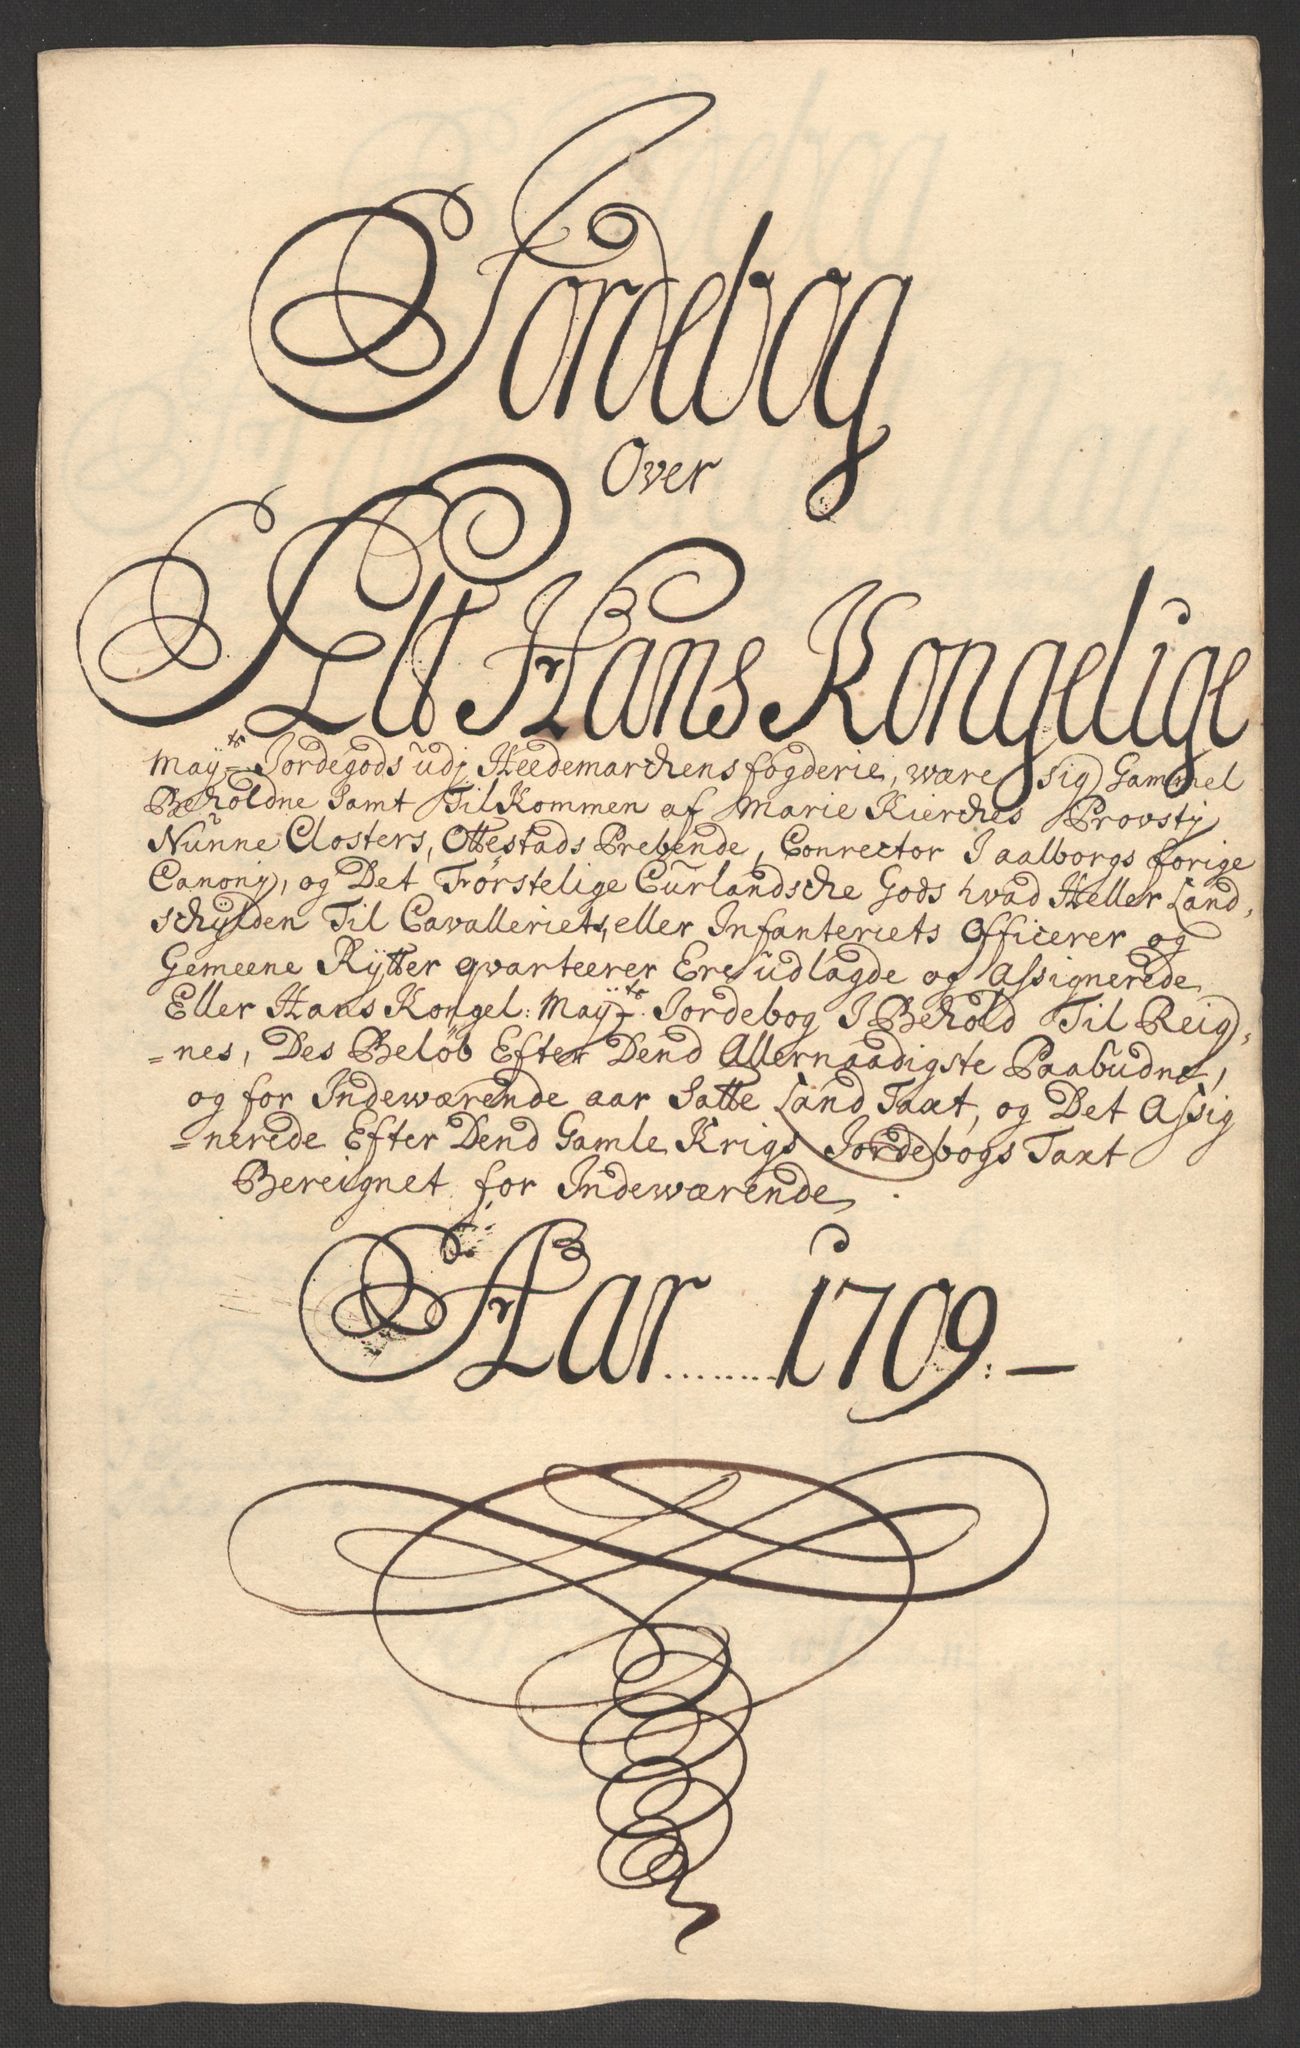 Jordebog
Over
Alt Hans Kongelige
May:ts Jordegods udj Heedemarckens fogderie, være sig Gammel
Beholdne Samt Tilkommen af Marie Kierckes Provstj
Nunne Closters, Ottestads Prebende, Conrector I aalborgs forige
Canonj, og Det Førstelige Curlandsche Gods hvad Heller Land,
schylden Til Cavalleriets, eller Infanteriets Officerer og
Gemeene Rytter qvarteerer Ere udlagde og Assignerede
Eller Hans Kongel: May:ts Jordebog I Behold Til Reig,
=nes, Des Beløb Efter Dend Allernaadigste Paabudne,
og for Indeværende aar Satte Land Taxt, og Det Assig
=nerede Efter Dend Gamle Krigs Jordebogs Taxt
Bereignet for Indeværende
Aar ........ 1709:—